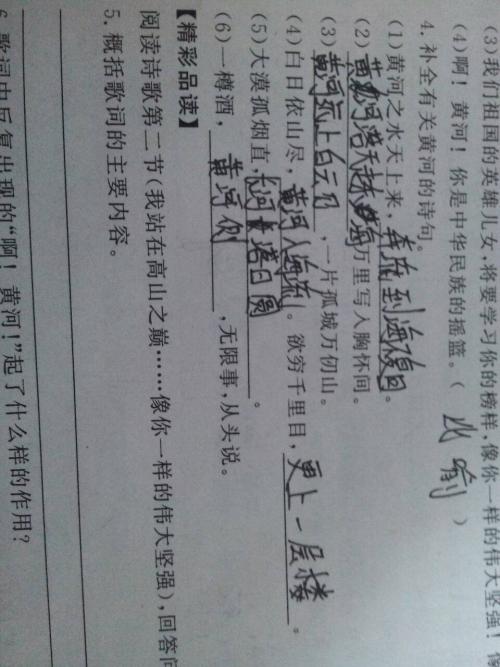 (3)我们祖国的英雄儿女,将要学习你的榜样,像你一样的伟大坚强!像
(4)啊!黄河!你是中华民族的摇篮。(比喻)
4.补全有关黄河的诗句。
(1)黄河之水天上来,奔流到海不复回。
(2)黄河落天走东海,万里写入胸怀间。
(3)黄河远上白云间,一片孤城万仞山。
(4)白日依山尽,黄河入海流。欲穷千里目,更上一层楼。
(5)大漠孤烟直,长河落日圆。
(6)一樽酒,黄河侧,无限事,从头说。
【精彩品读】
阅读诗歌第二节(我站在高山之巅……像你一样的伟大坚强),回答问
5.概括歌词的主要内容。
6.歌词中反复出现的“啊!黄河!”起了什么样的作用?